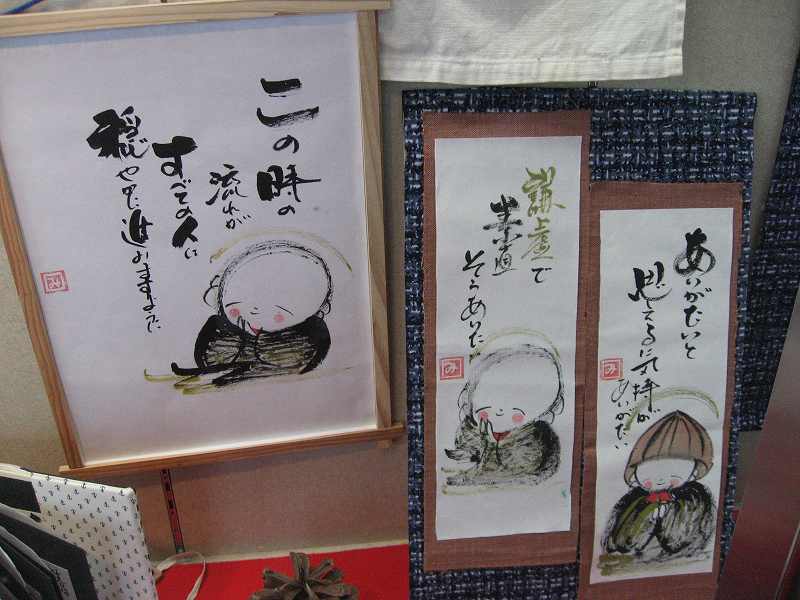 この時の
流れが
すべての人に
穏やかに進みますように
み
謙虚で
素直
そうありたい
み
ありがたいと
思える
気持が
ありがたい
み